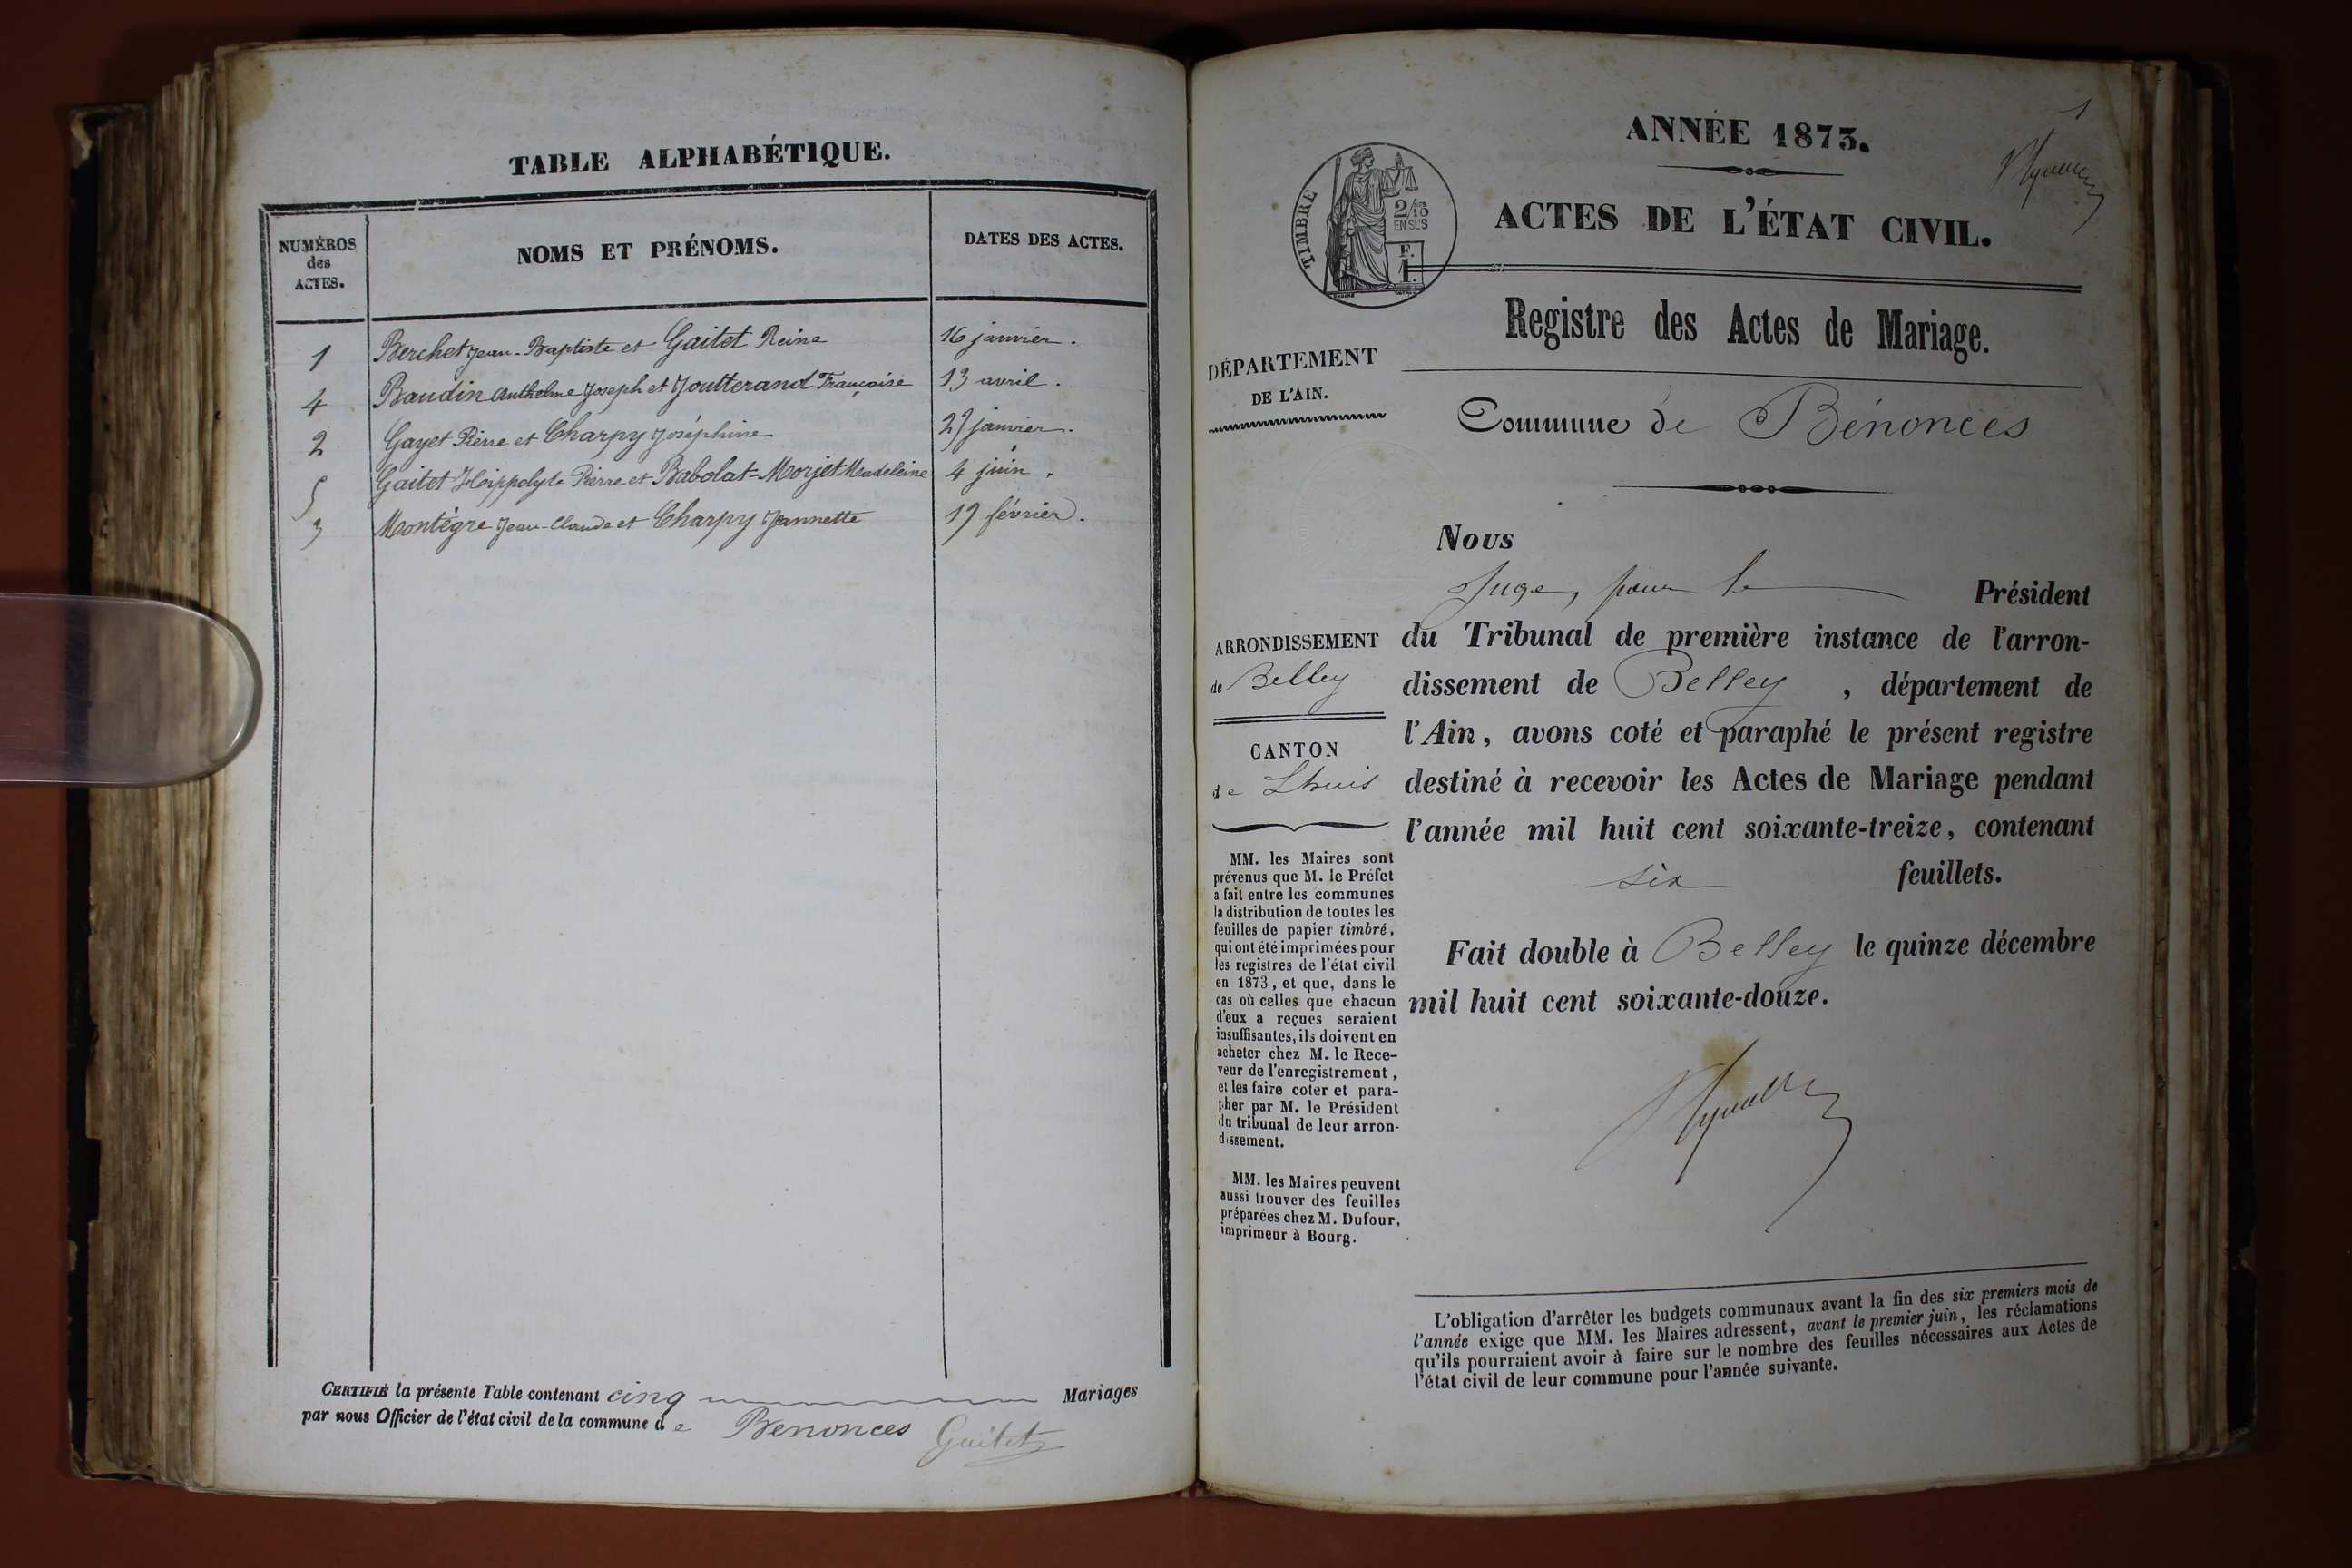 TABLE ALPHABÉTIQUE.
NUMÉROS
des
ACTES.
NOMS ET PRÉNOMS.
DATES DES ACTES.
1 Berchet Jean-Baptiste et Gaitet Reine 16 janvier.
4 Baudin Anthelme Joseph et Joutterand Françoise 13 avril.
2 Gayet Pierre et Charpy Joséphine janvier.
5 Gaitet Hippolyte Pierre et Babolat-Morjet Madeleine 4 juin.
3 Montègre Jean-Claude et Charpy Jeannette février.
CERTIFIÉ la présente Table contenant cinq Mariages
par nous Officier de l'état civil de la commune de Benonces Gaitet
1
ANNÉE 1873.
TIMBRE
2/10
EN SUS
ACTES DE L'ÉTAT CIVIL.
Registre des Actes de Mariage.
DÉPARTEMENT
DE L'AIN.
Commune de Bénonces
Nous
Juge, pour le Président
du Tribunal de première instance de l'arron-
dissement de Belley, département de
l'Ain, avons coté et paraphé le présent registre
destiné à recevoir les Actes de Mariage pendant
l'année mil huit cent soixante-treize, contenant
six feuillets.
Fait double à Belley le quinze décembre
mil huit cent soixante-douze.
ARRONDISSEMENT
de Belley
CANTON
de Lhuis
MM. les Maires sont
prévenus que M. le Préfet
a fait entre les communes
la distribution de toutes les
feuilles de papier timbré,
qui ont été imprimées pour
les registres de l'état civil
en 1873, et que, dans le
cas où celles que chacun
d'eux a reçues seraient
insuffisantes, ils doivent en
acheter chez M. le Rece-
veur de l'enregistrement,
et les faire coter et para-
pher par M. le Président
du tribunal de leur arron-
dissement.
MM. les Maires peuvent
aussi trouver des feuilles
préparées chez M. Dufour,
imprimeur à Bourg.
L'obligation d'arrêter les budgets communaux avant la fin des six premiers mois de
l'année exige que MM. les Maires adressent, avant le premier juin, les réclamations
qu'ils pourraient avoir à faire sur le nombre des feuilles nécessaires aux Actes de
l'état civil de leur commune pour l'année suivante.